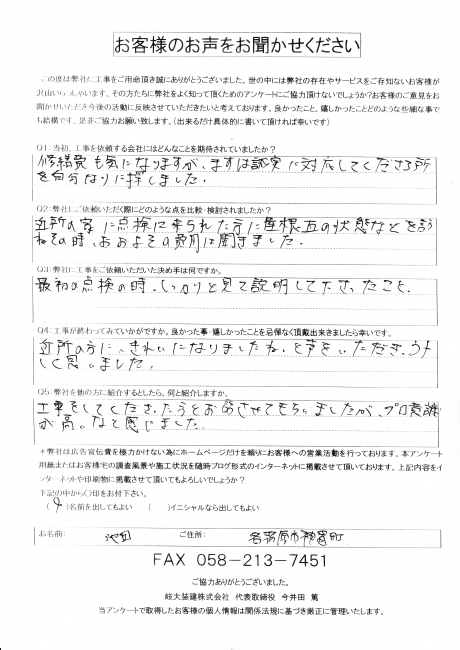 お客様のお声をお聞かせください
この度は弊社に工事をご用命頂き誠にありがとうございました。世の中には弊社の存在やサービスをご存知ないお客様が
沢山いらっしゃいます。その方たちに弊社をよく知って頂くためのアンケートにご協力頂けないでしょうか？お客様のご意見をお
聞かせいただき今後の活動に反映させていただきたいと考えております。良かったこと、嬉しかったことどのような些細な事で
も結構です。是非ご協力お願い致します。（出来るだけ具体的に書いて頂ければ幸いです）
Q1:当初、工事を依頼する会社にはどんなことを期待されていましたか？
修繕費も気になりますが、まずは誠実に対応してくださる所
を自分なりに探しました.
Q2:弊社にご依頼いただく際にどのような点を比較・検討されましたか？
近所の家に点検に来られた方に屋根瓦の状態などを訪
ねその時、おおよその費用は聞きました.
Q3:弊社に工事をご依頼いただいた決め手は何ですか。
最初の点検の時、しっかりと見て説明して下さったこと.
Q4:工事が終わってみていかがですか。良かった事・嬉しかったことを忌憚なく頂戴出来きましたら幸いです。
近所の方に、きれいになりましたね、と声をいただき、うれ
しく思いました.
Q5:弊社を他の方に紹介するとしたら、何と紹介しますか。
工事をしてくださった方とお話させてもらいましたが、プロ意識
が高いなと感じました.
＊弊社は広告宣伝費を極力かけない為にホームページだけを頼りにお客様への営業活動を行っております。本アンケート
用紙またはお客様宅の調査風景や施工状況を随時ブログ形式のインターネットに掲載させて頂いております。上記内容をイ
ンターネットや印刷物に掲載させて頂いてもよろしいでしょうか？
下記の中から〇印をお付下さい。
（ ）名前を出してもよい （ ）イニシャルなら出してもよい
お名前: 池田 ご住所: 各務原市
FAX 058-213-7451
ご協力ありがとうございました。
岐大装建株式会社 代表取締役 今井田 篤
当アンケートで取得したお客様の個人情報は関係法規に基づき厳正に管理いたします。